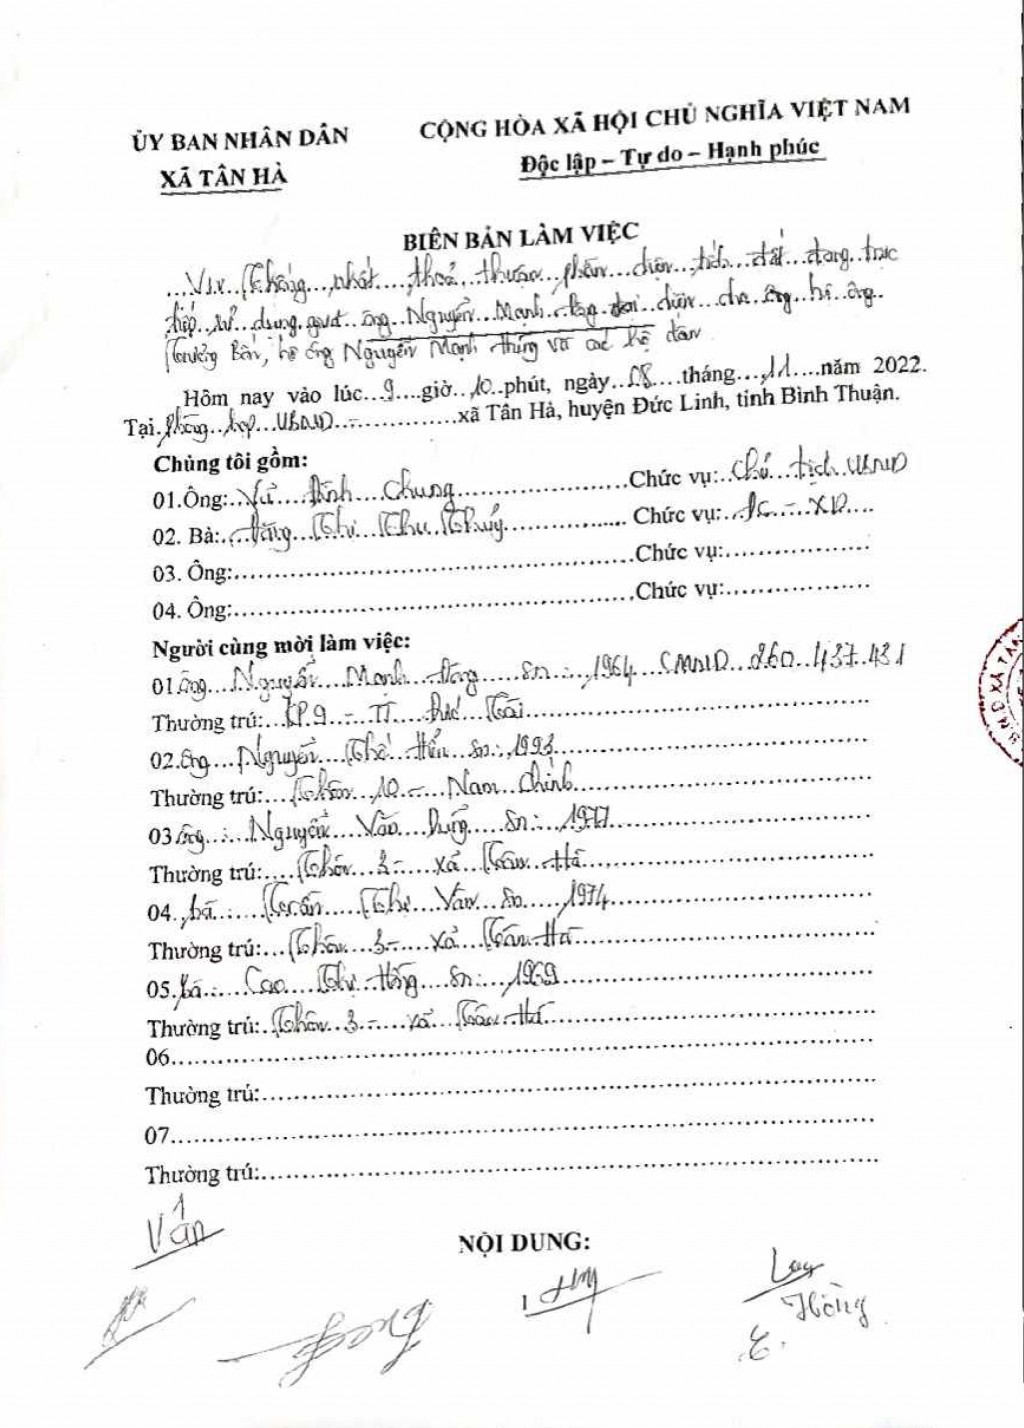 ỦY BAN NHÂN DÂN
XÃ TÂN HÀ
CỘNG HÒA XÃ HỘI CHỦ NGHĨA VIỆT NAM
Độc lập – Tự do – Hạnh phúc
BIÊN BẢN LÀM VIỆC
V/v Thống nhất thoả thuận phần diện tích đất đang trực
tiếp sử dụng giữa ông Nguyễn Mạnh đại diện cho ông hộ ông
Trương Bốn, hộ ông Nguyễn Mạnh Hùng và các hộ dân
Hôm nay vào lúc 9 giờ 10 phút, ngày 08 tháng 11 năm 2022.
Tại phòng họp UBND xã Tân Hà, huyện Đức Linh, tỉnh Bình Thuận.
Chúng tôi gồm:
01.Ông: Vũ Đình Chung Chức vụ: Chủ tịch UBND
02. Bà: Đặng Thị Thu Thuỷ Chức vụ: ĐC - XD
03. Ông: Chức vụ:
04. Ông: Chức vụ:
Người cùng mời làm việc:
01 ông Nguyễn Mạnh Đông Sn: 1964 CMND 260 437 431
Thường trú: KP9 - TT Đức Tài
02. ông Nguyễn Thế Hiển Sn: 1993
Thường trú: Thôn 10 - Nam Chính
03 ông: Nguyễn Văn Dũng Sn: 1977
Thường trú: Thôn 3 - xã Tân Hà
04. bà: Trần Thị Vân Sn 1974
Thường trú: Thôn 3 - xã Tân Hà
05. bà: Cao Thị Hồng Sn: 1969
Thường trú: Thôn 3 - xã Tân Hà
06
Thường trú:
07
Thường trú:
Vân
NỘI DUNG:
1
Hồng